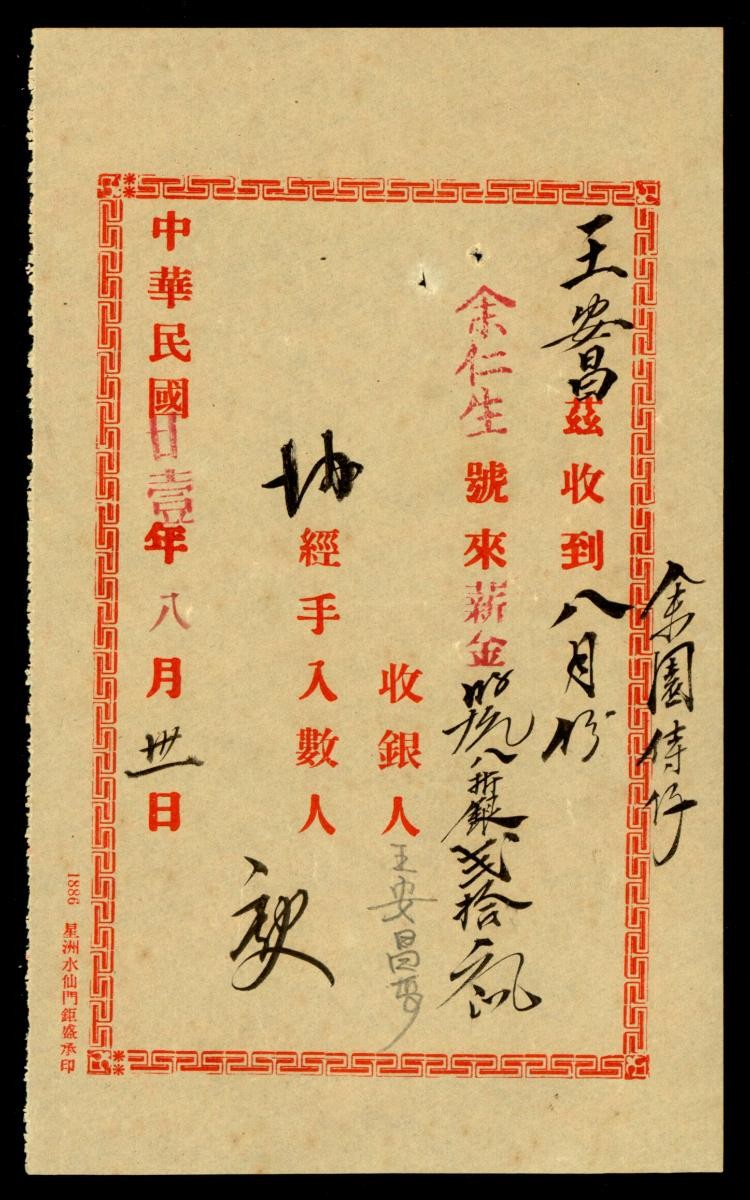 余園待仔
王安昌茲收到八月份
余仁生號來薪金八折銀弍拾
收銀人王安昌
經手入數人
中華民國廿壹年八月卅一日
1886 星洲水仙門鉅盛承印